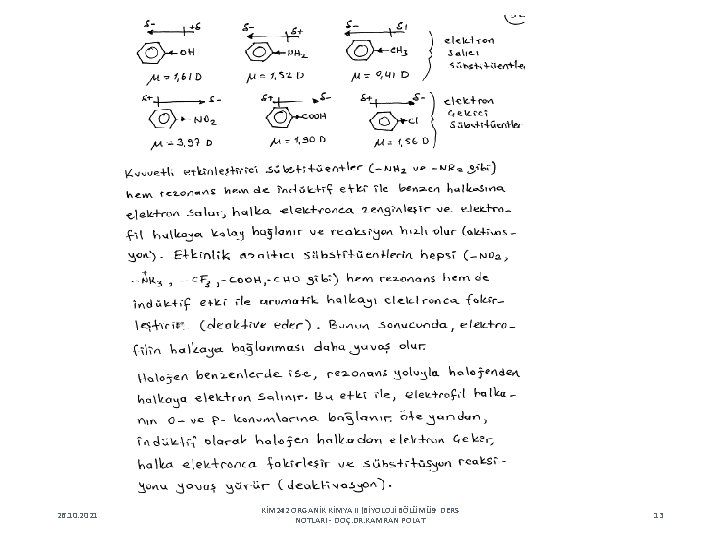 32
δ- +δ δ- δ+ δ- δ+
OH NH2 CH3
μ = 1,61 D μ = 1,52 D μ = 0,41 D
elektron
salıcı
sübstitüentler
δ+ δ- δ+ δ- δ+ δ-
NO2 COOH Cl
μ = 3,97 D μ = 1,90 D μ = 1,56 D
elektron
çekici
sübstitüentler
Kuvvetli etkinleştirici sübstitüentler (-NH2 ve -NR2 gibi)
hem rezonans hem de indüktif etki ile benzen halkasına
elektron salar, halka elektronca zenginleşir ve elektro-
fil halkaya kolay bağlanır ve reaksiyon hızlı olur (aktivas-
yon). Etkinlik azaltıcı sübstitüentlerin hepsi (-NO2,
-NR3+, -CF3, -COOH, -CHO gibi) hem rezonans hem de
indüktif etki ile aromatik halkayı elektronca fakir-
leştirir (deaktive eder). Bunun sonucunda, elektro-
filin halkaya bağlanması daha yavaş olur.
Halojen benzenlerde ise, rezonans yoluyla halojenden
halkaya elektron salınır. Bu etki ile, elektrofil halka-
nın o- ve p- konumlarına bağlanır. Öte yandan,
indüktif olarak halojen halkadan elektron çeker,
halka elektronca fakirleşir ve sübstitüsyon reaksi-
yonu yavaş yürür (deaktivasyon).
26.10.2021
KİM242 ORGANİK KİMYA II (BİYOLOJİ BÖLÜMÜ) - DERS
NOTLARI - DOÇ.DR.KAMRAN POLAT
13